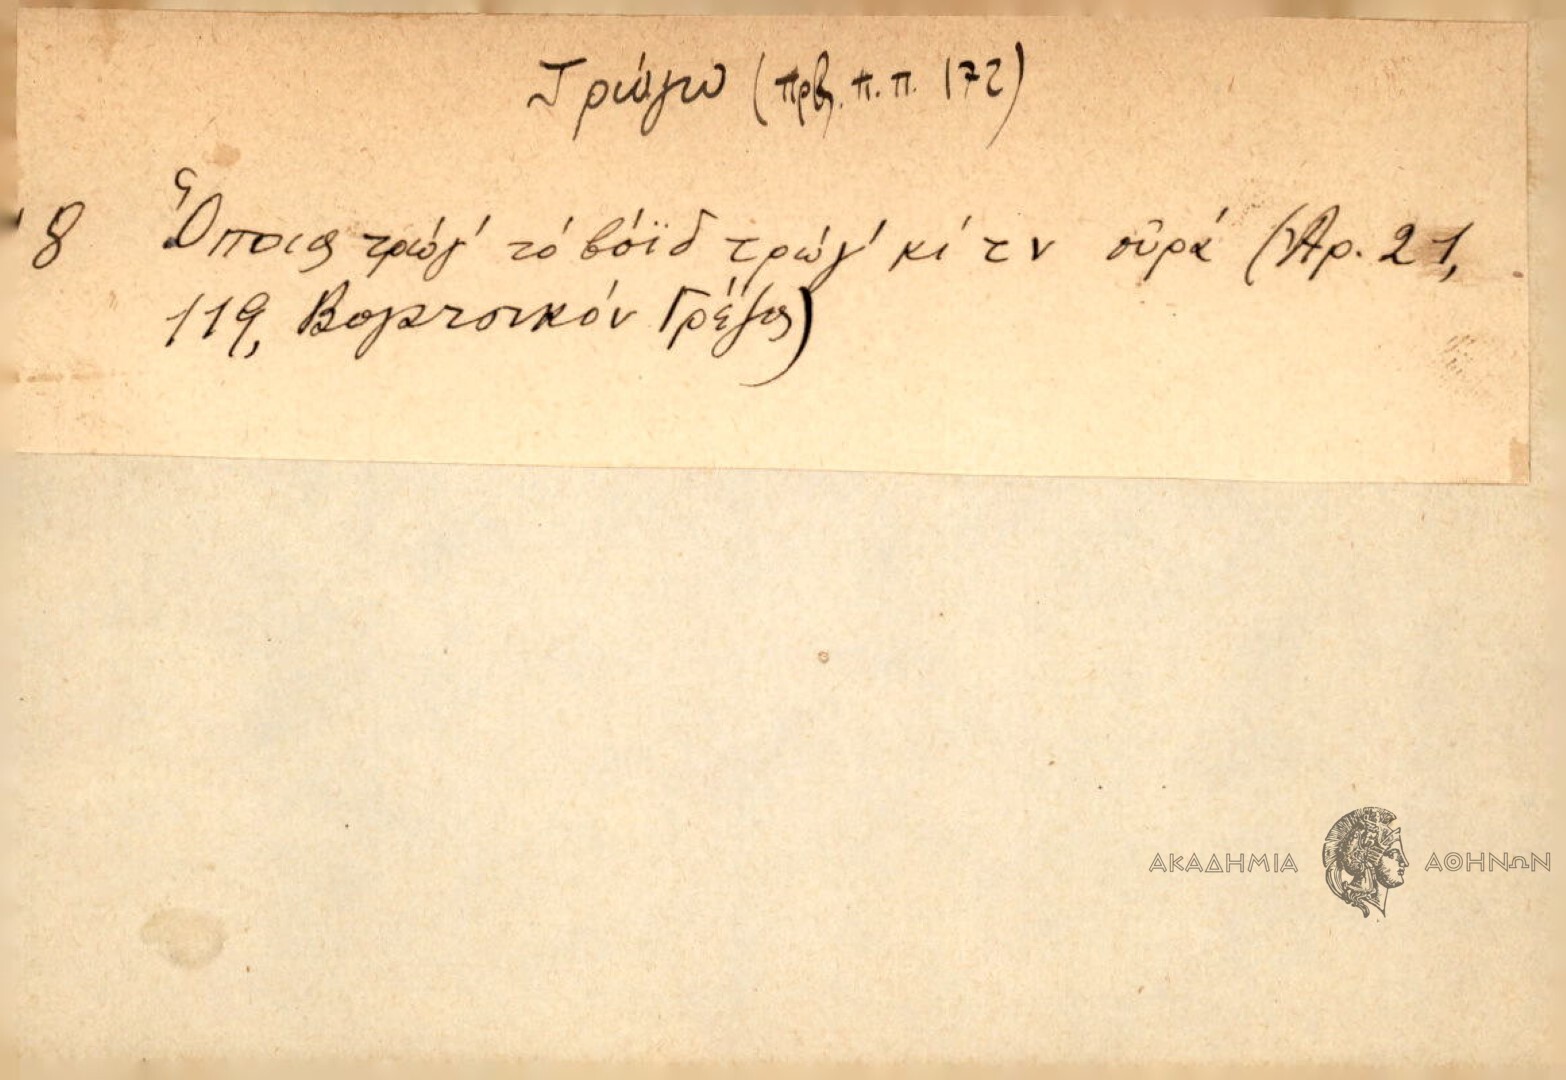 Τρώγω (πρβ. π.π. 172)
8 Ὅποιος τρώγ' τό βόϊδ τρώγ' κί τν οὐρά (Ἀρ. 21,
119, Βογατσικόν Γρέβας)
ΑΚΑΔΗΜΙΑ ΑΘΗΝΩΝ